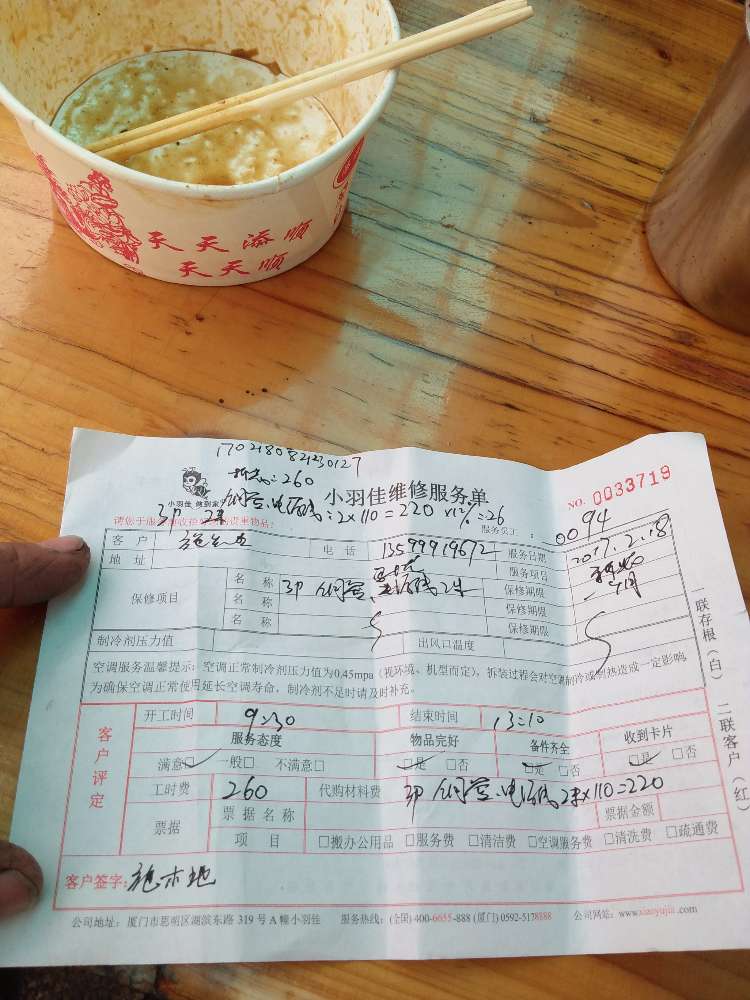 天天添顺
天天顺
170218082130127
260
小羽佳 做到家
小羽佳维修服务单
NO. 0033719
铜管、电源线:2×110=220 ×12%=26
请您于服务前收捡好您的贵重物品:
服务员工: 0094
客 户
电 话 13599919672 服务日期 2017.2.18
地 址
服务项目
保修项目 名 称 3P 铜管 电源线2米 保修期限 一个月
名 称 保修期限
名 称 保修期限
制冷剂压力值 出风口温度
空调服务温馨提示: 空调正常制冷剂压力值为0.45mpa (视环境、机型而定), 拆装过程会对空调制冷或制热造成一定影响,
为确保空调正常使用延长空调寿命, 制冷剂不足时请及时补充。
客户评定
开工时间 9:30 结束时间 13:10
服务态度 物品完好 备件齐全 收到卡片
满意□ 一般□ 不满意□ □是 □否 □是 □否 □是 □否
工时费 260 代购材料费 3P 铜管、电源线 2米×110=220
票据 票 据 名 称 票据金额
项 目 □搬办公用品 □服务费 □清洁费 □空调服务费 □清洗费 □疏通费
客户签字:
一联存根(白) 二联客户(红)
公司地址: 厦门市思明区湖滨东路 319 号 A 幢小羽佳 服务热线: (全国) 400-6655-888 (厦门) 0592-5178888 公司网站: www.xiaoyujia.com